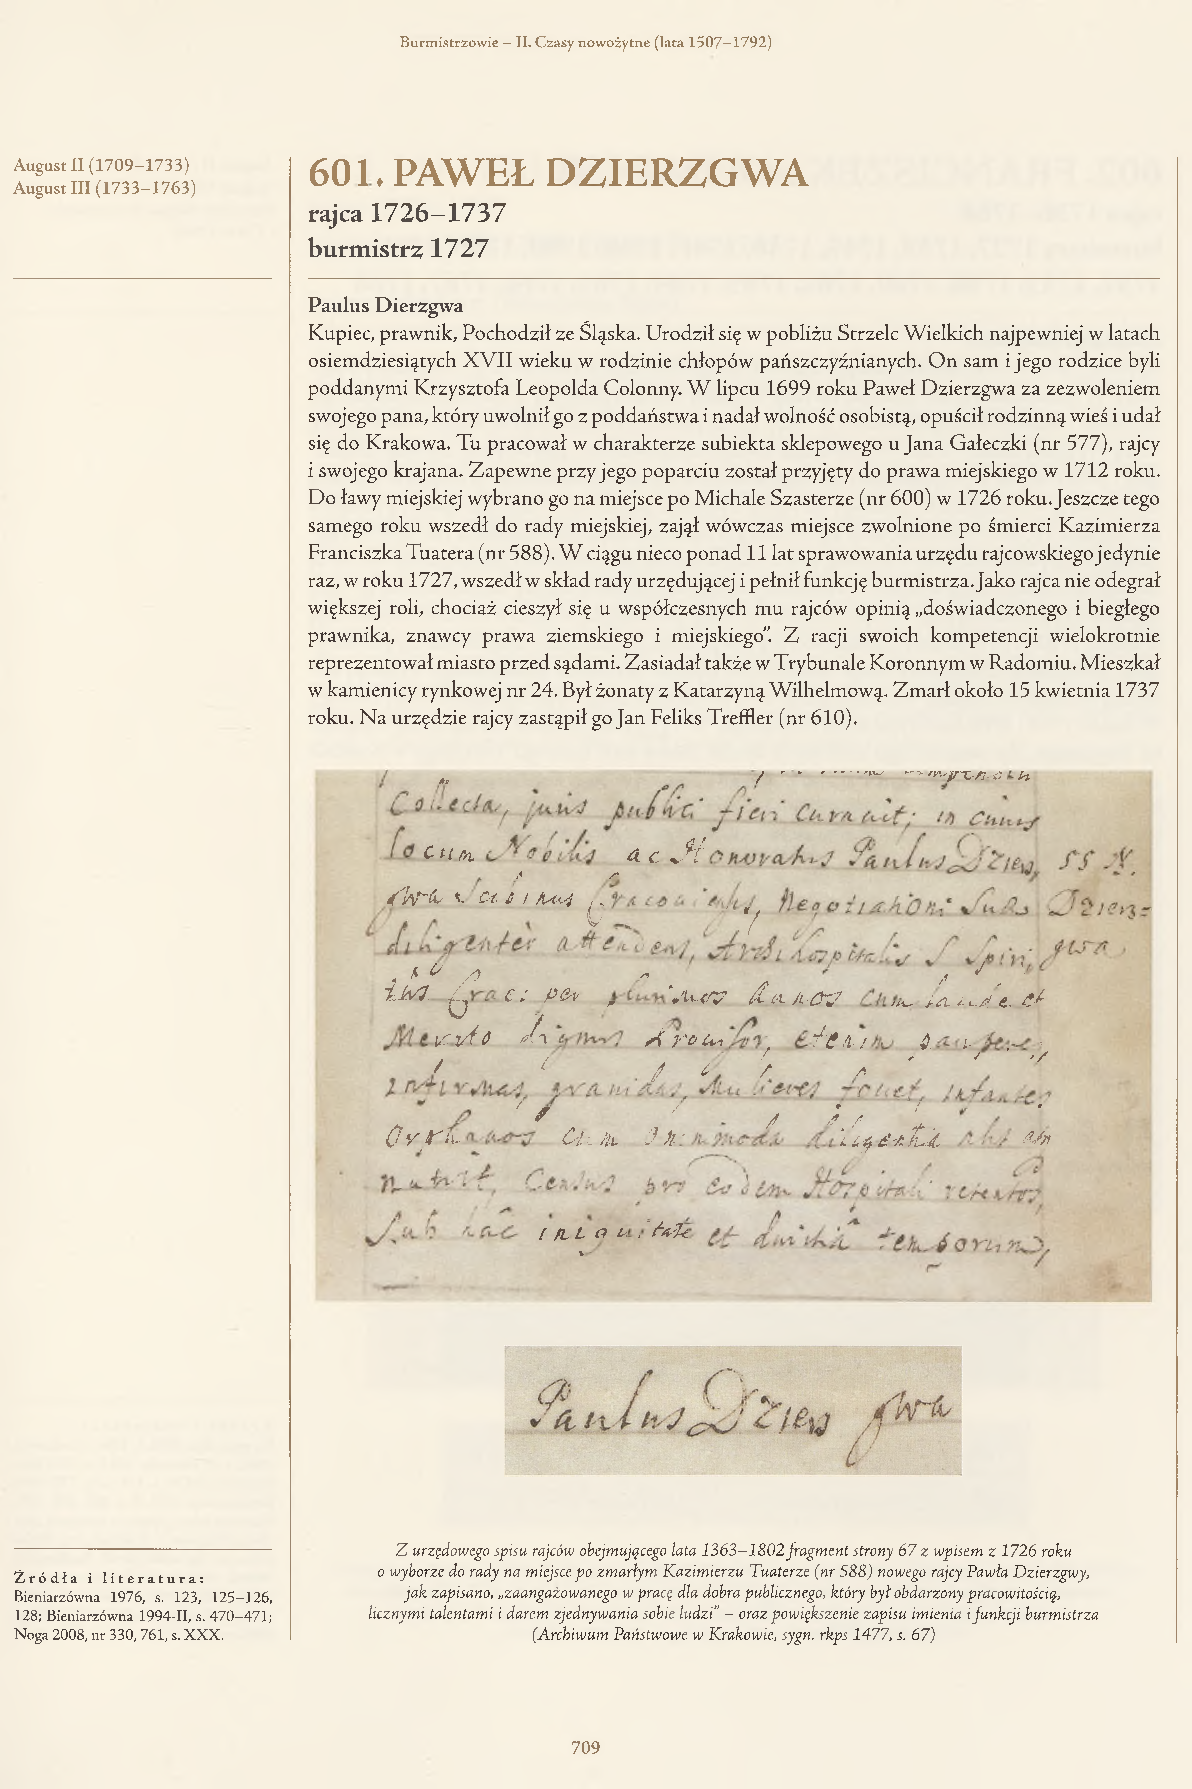 Burmistrzowie – II. Czasy nowożytne (lata 1507–1792)
August II (1709–1733)
August III (1733–1763)
601. PAWEŁ DZIERZGWA
rajca 1726–1737
burmistrz 1727
Paulus Dierzgwa
Kupiec, prawnik, Pochodził ze Śląska. Urodził się w pobliżu Strzelc Wielkich najpewniej w latach
osiemdziesiątych XVII wieku w rodzinie chłopów pańszczyźnianych. On sam i jego rodzice byli
poddanymi Krzysztofa Leopolda Colonny. W lipcu 1699 roku Paweł Dzierzgwa za zezwoleniem
swojego pana, który uwolnił go z poddaństwa i nadał wolność osobistą, opuścił rodzinną wieś i udał
się do Krakowa. Tu pracował w charakterze subiekta sklepowego u Jana Gałeczki (nr 577), rajcy
i swojego krajana. Zapewne przy jego poparciu został przyjęty do prawa miejskiego w 1712 roku.
Do ławy miejskiej wybrano go na miejsce po Michale Szasterze (nr 600) w 1726 roku. Jeszcze tego
samego roku wszedł do rady miejskiej, zajął wówczas miejsce zwolnione po śmierci Kazimierza
Franciszka Tuatera (nr 588). W ciągu nieco ponad 11 lat sprawowania urzędu rajcowskiego jedynie
raz, w roku 1727, wszedł w skład rady urzędującej i pełnił funkcję burmistrza. Jako rajca nie odegrał
większej roli, chociaż cieszył się u współczesnych mu rajców opinią „doświadczonego i biegłego
prawnika, znawcy prawa ziemskiego i miejskiego”. Z racji swoich kompetencji wielokrotnie
reprezentował miasto przed sądami. Zasiadał także w Trybunale Koronnym w Radomiu. Mieszkał
w kamienicy rynkowej nr 24. Był żonaty z Katarzyną Wilhelmową. Zmarł około 15 kwietnia 1737
roku. Na urzędzie rajcy zastąpił go Jan Feliks Treffler (nr 610).
Collecta, juris publici fieri curauit; in cuius
locum Nobilis ac Honoratus Paulus Dzierz
gwa Scabinus Cracouiensis, Negotiationi Suae
diligenter attendens, Archihospitalis S Spiri
tus Crac: per plurimos Annos cum laude et
Merito dignus Prouisor, etenim pauperes,
infirmas, grauidas, Mulieres fouet, infantes
Orphanos cum omnimoda diligentia
nutrit, Census pro eodem Hospitali retentos,
Sub hac iniquitate et temporum,
Dzierz=
gwa
Paulus Dzierz gwa
Z urzędowego spisu rajców obejmującego lata 1363–1802 fragment strony 67 z wpisem z 1726 roku
o wyborze do rady na miejsce po zmarłym Kazimierzu Tuaterze (nr 588) nowego rajcy Pawła Dzierzgwy,
jak zapisano, „zaangażowanego w pracę dla dobra publicznego, który był obdarzony pracowitością,
licznymi talentami i darem zjednywania sobie ludzi” – oraz powiększenie zapisu imienia i funkcji burmistrza
(Archiwum Państwowe w Krakowie, sygn. rkps 1477, s. 67)
Źródła i literatura:
Bieniarzówna 1976, s. 123, 125–126,
128; Bieniarzówna 1994-II, s. 470–471;
Noga 2008, nr 330, 761, s. XXX.
709